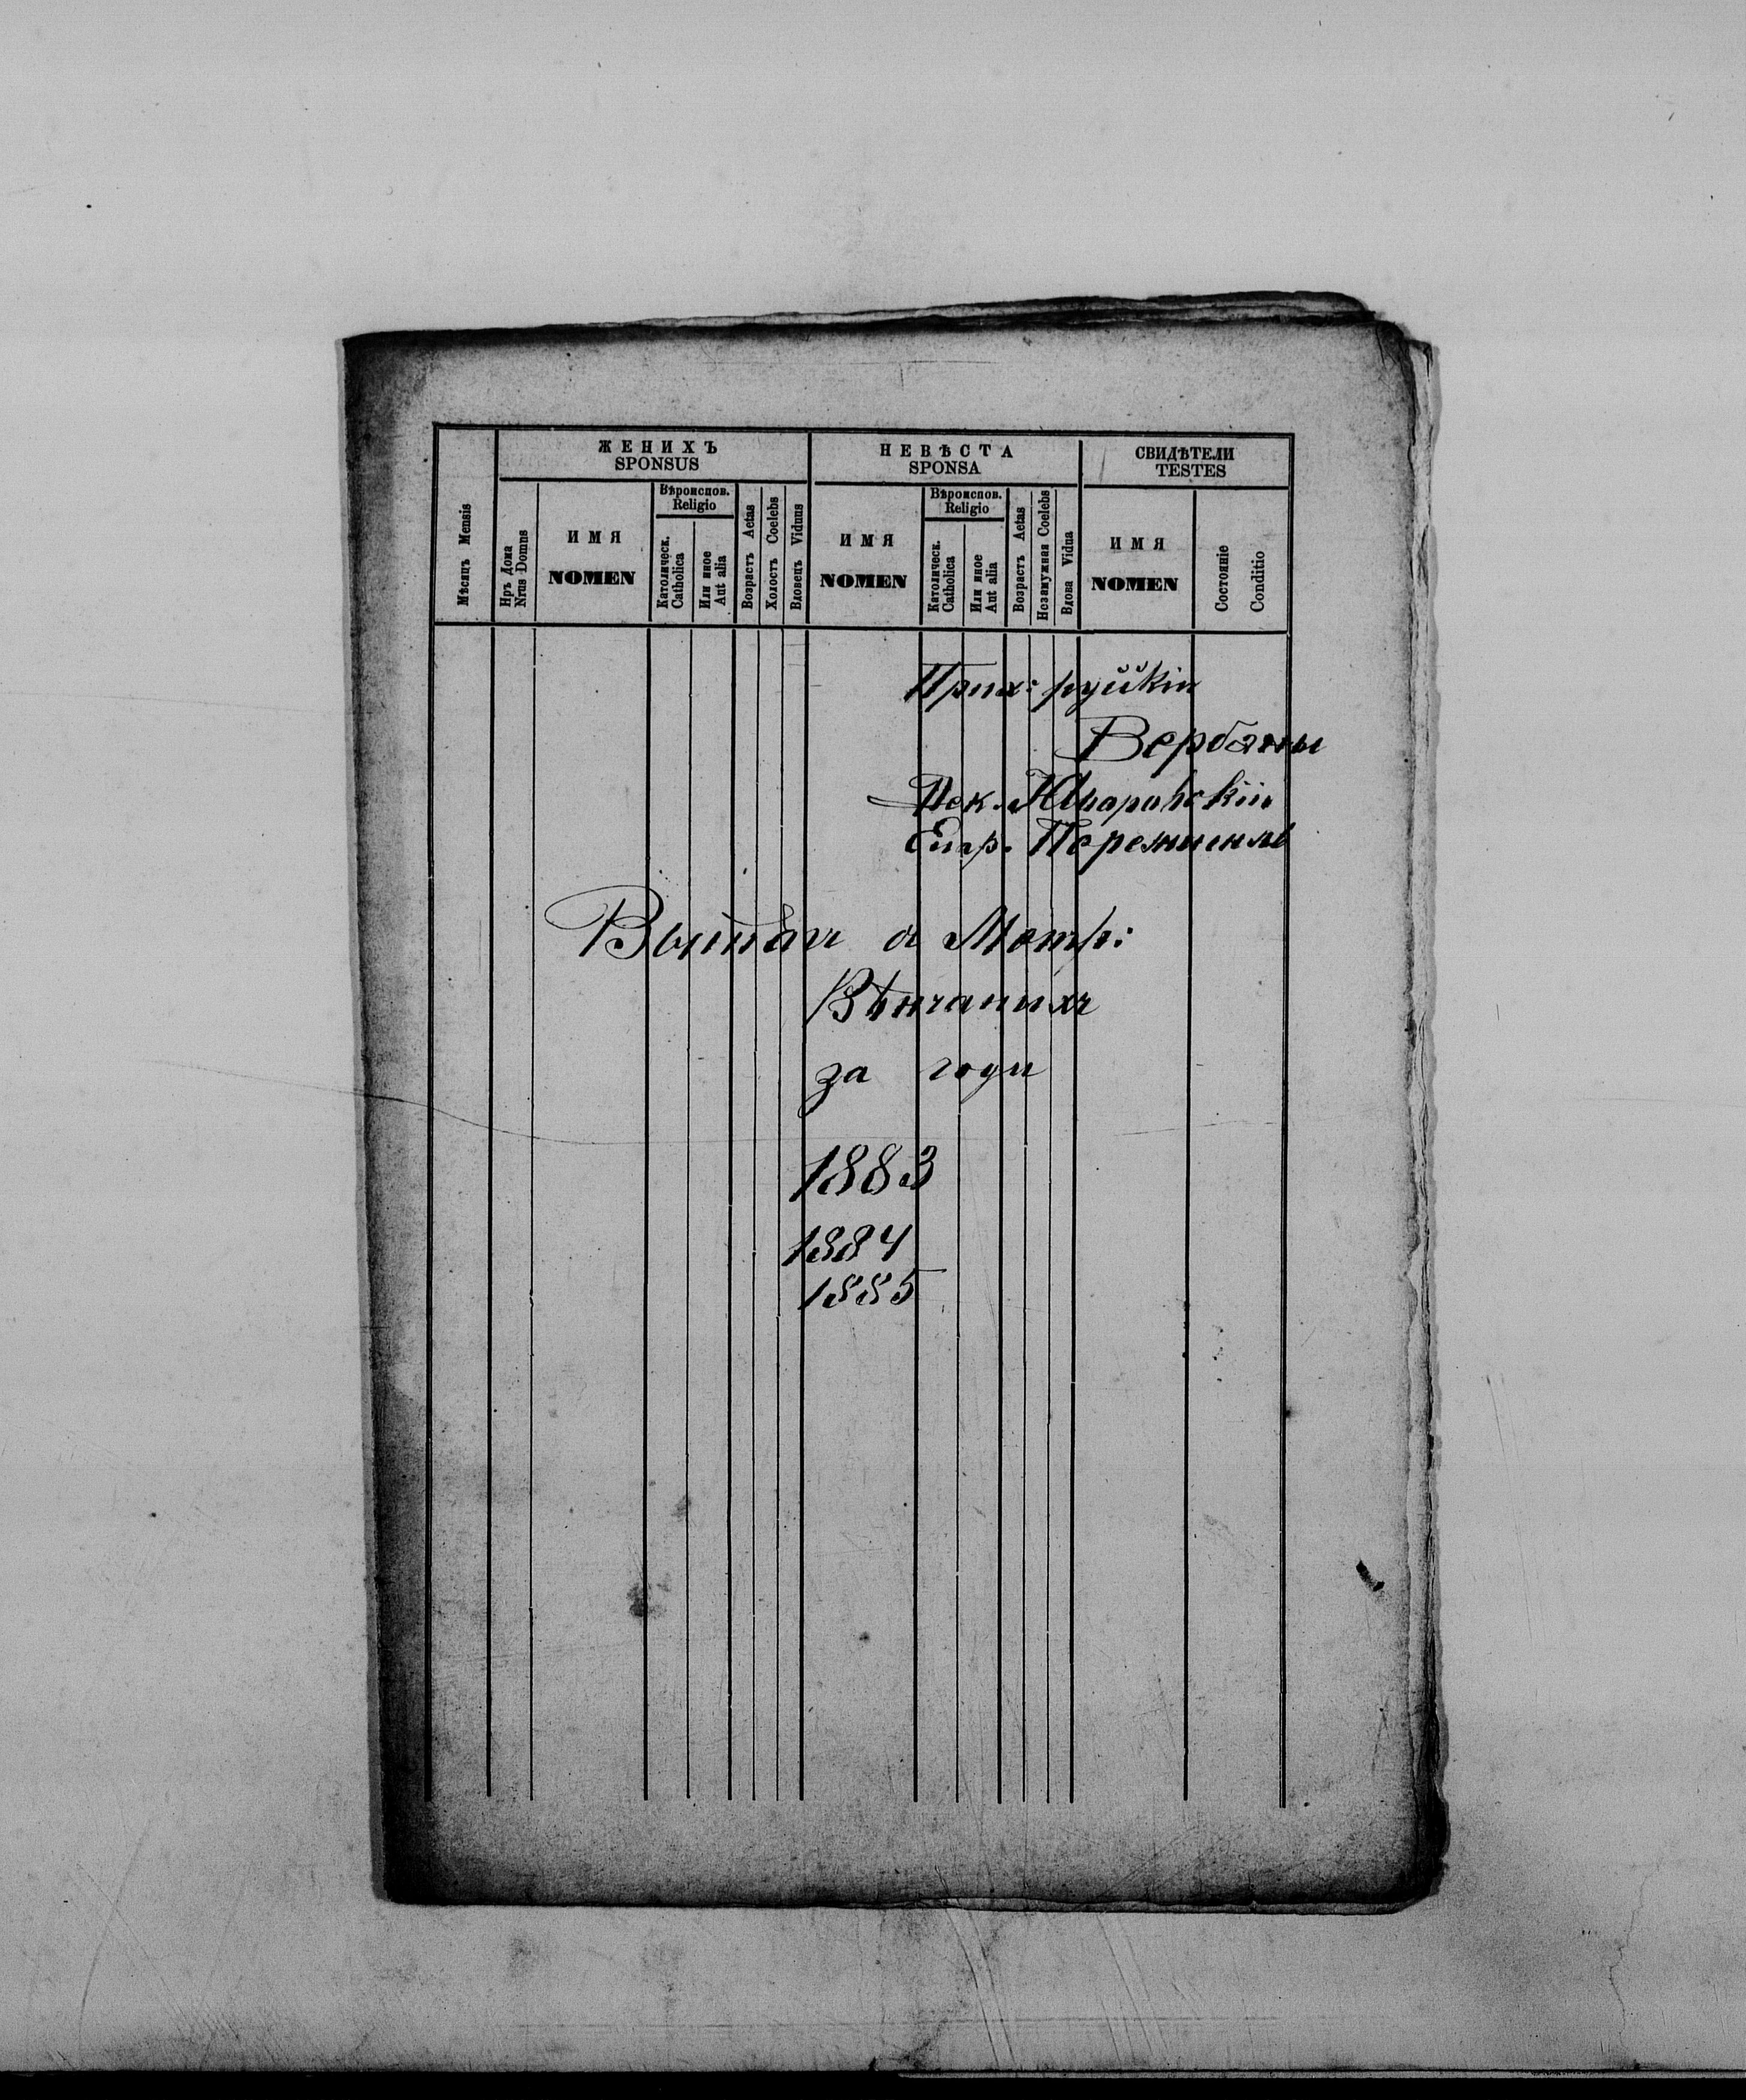 ЖЕНИХЪ
SPONSUS
НЕВѢСТА
SPONSA
СВИДѢТЕЛИ
TESTES
Мѣсяцъ Mensis
Нръ Дома
Nrus Domus
ИМЯ
NOMEN
Вѣроиспов.
Religio
Католическ.
Catholica
Или иное
Aut alia
Возрастъ Aetas
Холостъ Coelebs
Вдовецъ Viduus
ИМЯ
NOMEN
Вѣроиспов.
Religio
Католическ.
Catholica
Или иное
Aut alia
Возрастъ Aetas
Незамужная Coelebs
Вдова Vidua
ИМЯ
NOMEN
Состояніе
Conditio
Прих:
Вербяны
Дек. Яворовскій
Епар. Перемишль
Выпись а Метр:
Вѣнчаныхъ
за годы
1883
1884
1885